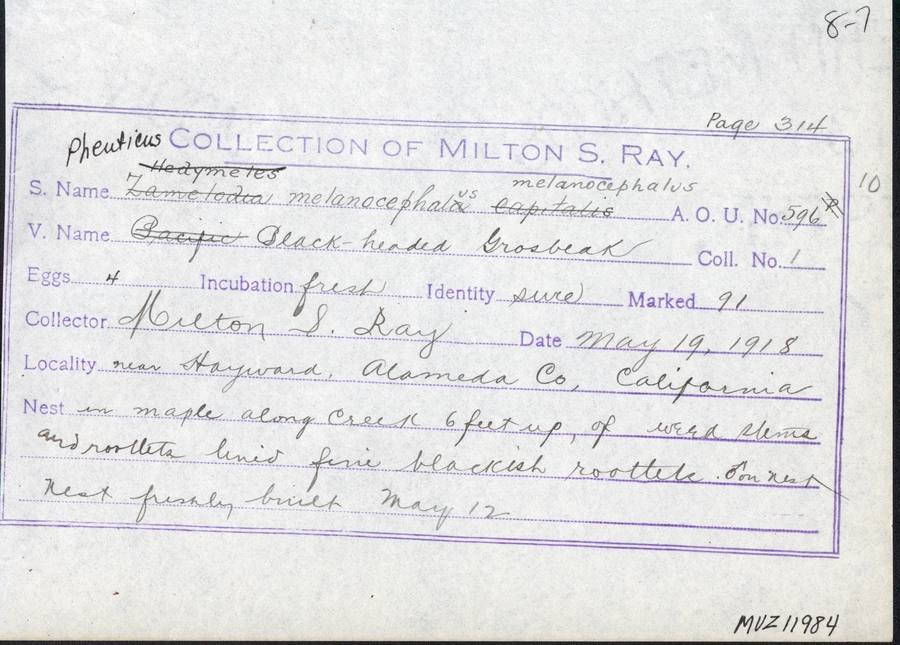 8-7
Page 314
Pheuticus COLLECTION OF MILTON S. RAY.
Hedymeles melanocephalus 10
S. Name Zamelodia melanocephalus capitalis A. O. U. No. 596
V. Name Pacific Black-headed Grosbeak Coll. No. 1
Eggs 4 Incubation fresh Identity sure Marked 91
Collector Milton S. Ray Date May 19, 1918
Locality near Hayward, Alameda Co, California
Nest in maple along creek 6 feet up, of weed stems
and rootlets lined fine blackish rootlets. on nest
Nest freshly built May 12
MVZ 11984